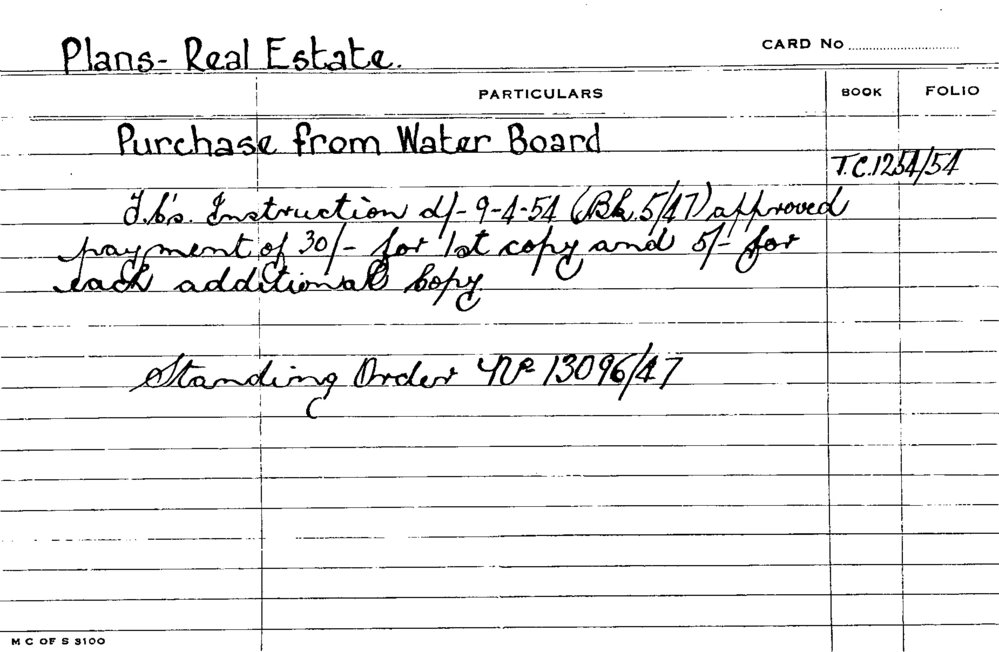 Plans- Real Estate.
CARD No
PARTICULARS
BOOK
FOLIO
Purchase from Water Board
T.C.1254/54
T.C's. Instruction d/- 9-4-54 (Bk.5/47) approved
payment of 30/- for 1st copy and 5/- for
each additional Copy.
Standing Order No 13096/47
M C OF S 3100